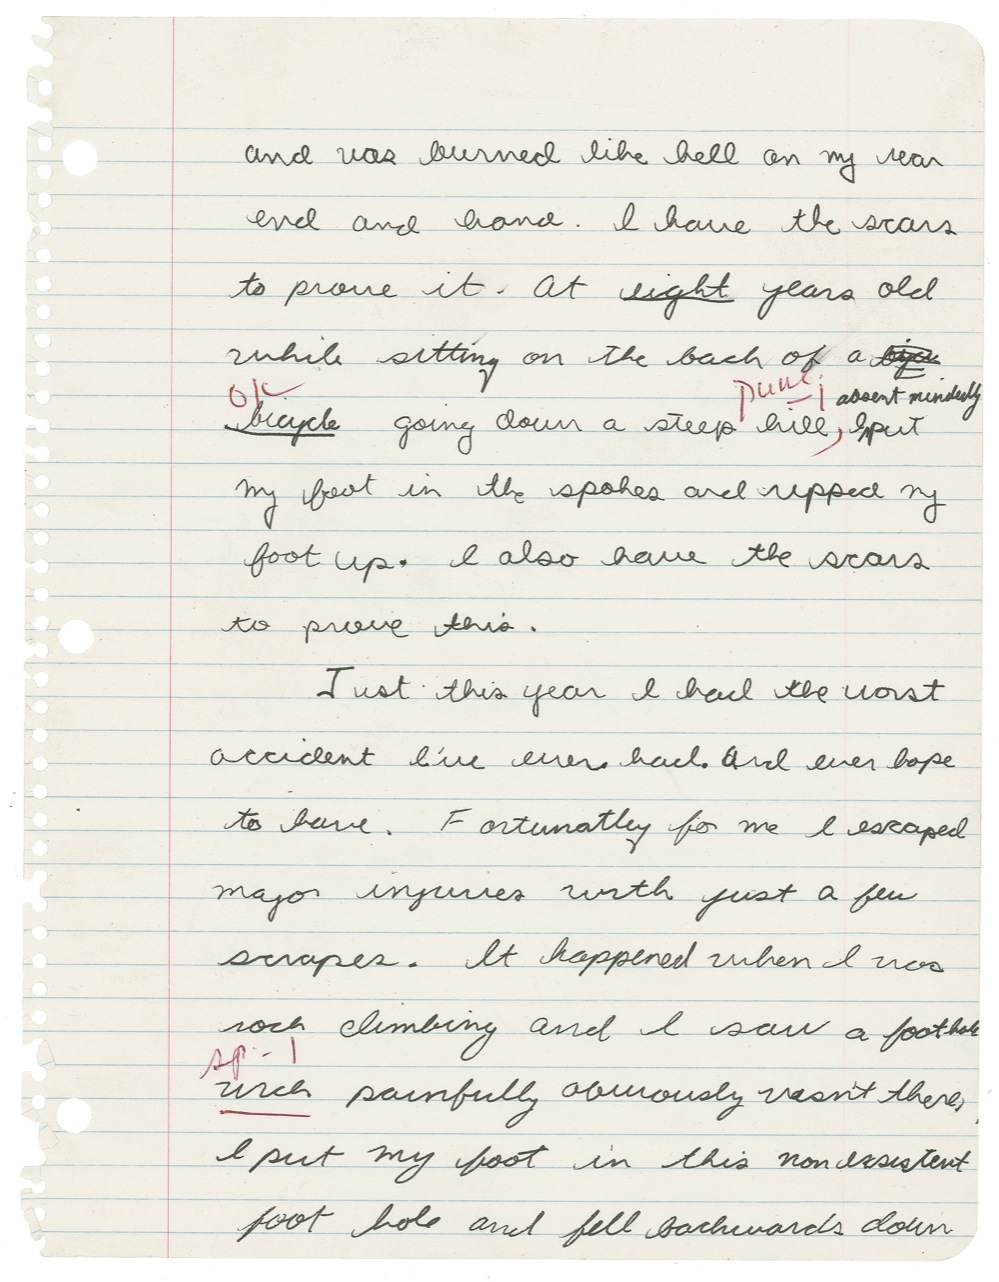 and was burned like hell on my rear
end and hand. I have the scars
to prove it. At eight years old
while sitting on the back of a
ok punc. - 1 absent mindedly
bicycle going down a steep hill, I put
my foot in the spokes and ripped my
foot up. I also have the scars
to prove this.
Just this year I had the worst
accident I've ever had. And ever hope
to have. Fortunatley for me I escaped
major injuries with just a few
scrapes. It happened when I was
rock climbing and I saw a foothole
sp. - 1
wich painfully obviously wasn't there,
I put my foot in this nonexsistent
foot hole and fell backwards down